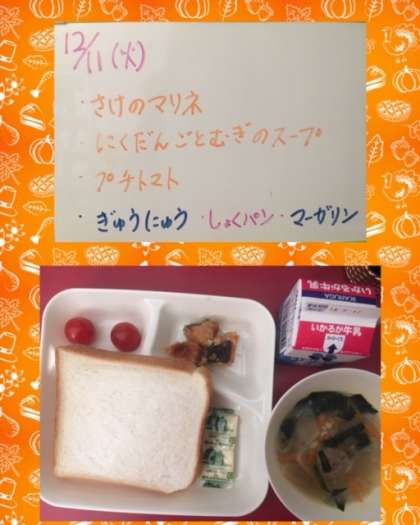 12/11(火)
・さけのマリネ
・にくだんごとむぎのスープ
・プチトマト
・ぎゅうにゅう ・しょくパン ・マーガリン
いかるが牛乳
IKARUGA
いかるが牛乳